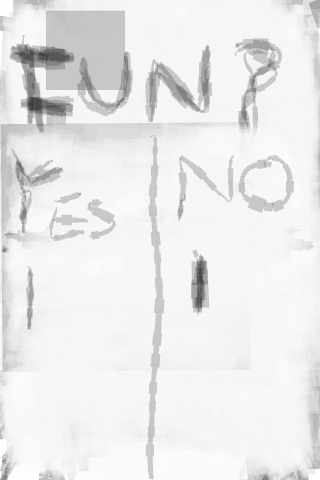 FUN?
YES NO
I I